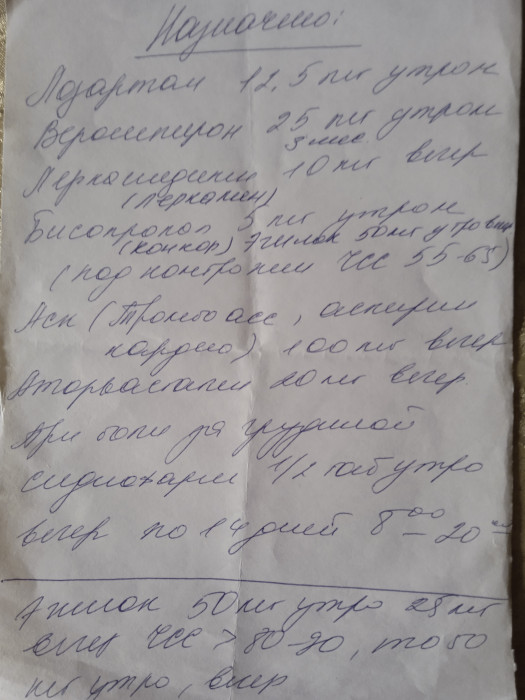 Назначено:
Лозартан 12,5 мг утром
Верошпирон 25 мг утром
3 мес
Лерканидипин 10 мг вечер
(Леркамен)
Бисопролол 5 мг утром
(конкор) Эгилок 50 мг утро веч
(под контролем ЧСС 55-65)
Аск (Тромбо асс, аспирин
кардио) 100 мг вечер
Аторвастатин 20 мг вечер
При боли за грудиной
сиднофарм 1/2 таб утро
вечер по 14 дней 8⁰⁰ - 20⁰⁰
Эгилок 50 мг утро 25 мг
вечер ЧСС > 80-90, то 50
мг утро, вечер